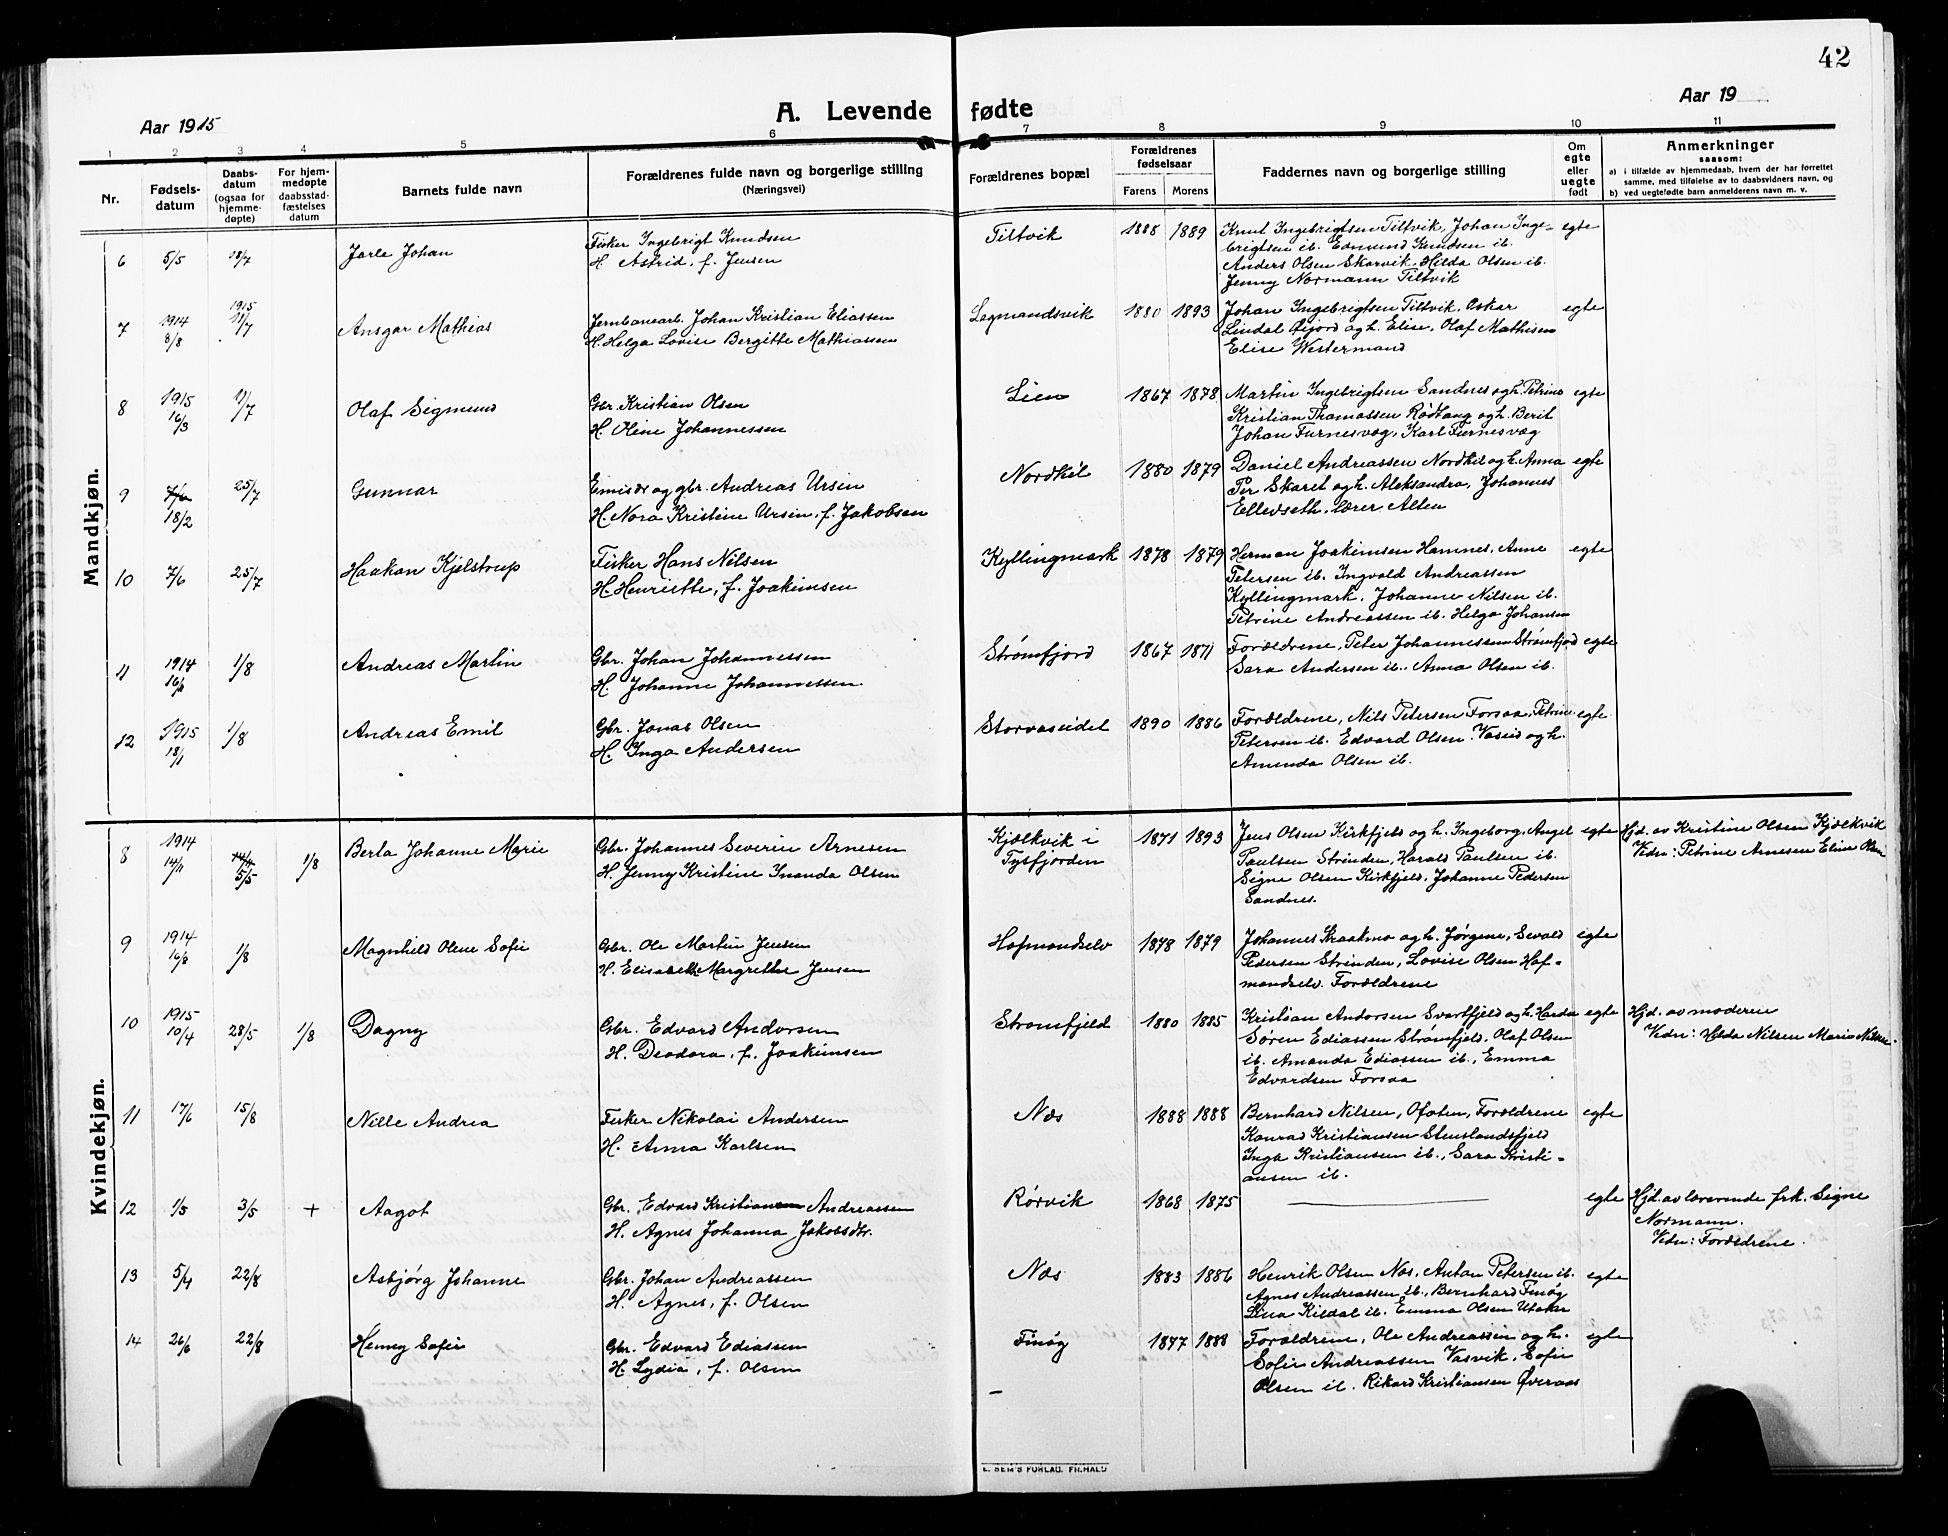 42
Aar 1915
A. Levende fødte
Aar 19
1 2 3 4 5 6 7 8 9 10 11
Nr.
Fødsels-
datum
Daabs-
datum
(ogsaa for
hjemme-
døpte)
For hjem-
medøpte
daabsstad-
fæstelses
datum
Barnets fulde navn
Forældrenes fulde navn og borgerlige stilling
(Næringsvei)
Forældrenes bopæl
Forældrenes
fødselsaar
Farens Morens
Faddernes navn og borgerlige stilling
Om
egte
eller
uegte
født
Anmerkninger
saasom:
a) i tilfælde av hjemmedaab, hvem der har forrettet
samme, med tilføielse av to daabsvidners navn, og
b) ved uegtefødte barn anmelderens navn m. v.
Mandkjøn.
6 5/5 11/7 Jarle Johan
Fisker Ingebrigt Knudsen
H. Astrid, f. Jensen
Tiltvik 1888 1889
Knut Ingebrigtsen Tiltvik, Johan Inge-
brigtsen ib. Edmund Knudsen ib.
Anders Olsen Skarvik, Hilda Olsen ib.
Jenny Normann Tiltvik
egte
7 1914 8/8 1915 11/7 Ansgar Mathias
Jernbanearb. Johan Kristian Eliassen
H. Helga Lovise Bergitte Mathiassen
Lagmandsvik 1880 1893
Johan Ingebrigtsen Tiltvik, Oskar
Lindal Efjord og h. Elise, Olaf Mathisen
Elise Westermand
egte
8 1915 16/3 11/7 Olaf Sigmund
Gbr. Kristian Olsen
H. Oline Johannessen
Lien 1867 1878
Martin Ingebrigtsen Sandnes og h. Petrine
Kristian Thomassen Rødtang og h. Berit
Johan Furnesvæg, Karl Furnesvæg
egte
9 7/6 18/2 25/7 Gunnar
Emisær og gbr. Andreas Ursin
H. Nora Kristine Ursin, f. Jakobsen
Nordkil 1880 1879
Daniel Andreassen Nordkil og h. Anna
Per Skaret og h. Aleksandra, Johannes
Ellevseth, lærer, Alten
egte
10 7/6 25/7 Haakan Kjelstrup
Fisker Hans Nilsen
H. Henriette, f. Joakimsen
Kyllingmark 1878 1879
Herman Joakimsen Hamnes, Anne
Petersen ib. Ingvald Andreassen
Kyllingmark, Johanne Nilsen ib.
Petrine Andreassen ib. Helga Johansen
egte
11 1914 1/8 Andreas Martin
Gbr. Johan Johannessen
H. Johanne Johannessen
Strømfjord 1867 1871
Forældrene, Peter Johannessen Strømfjord
Sara Andersen ib. Anna Olsen ib.
egte
12 1915 18/1 1/8 Andreas Emil
Gbr. Jonas Olsen
H. Inga Andersen
Storvaseidet 1890 1886
Forældrene, Nils Petersen Forsaa, Petrine
Petersen ib. Edvard Olsen Vaseid og h.
Amanda Olsen ib.
egte
Kvindekjøn.
8 1914 14/11 14/4 5/5 1/8 Berta Johanne Marie
Gbr. Johannes Severin Arnesen
H. Jenny Kristine Inanda Olsen
Kjelkvik i
Tysfjorden
1871 1893
Jens Olsen Kirkfjeld og h. Ingeborg, Angel
Paulsen Strinden, Harald Paulsen ib.
Signe Olsen Kirkfjeld, Johanne Pedersen
Sandnes.
egte
Hjd. av Kristine Olsen Kjelkvik
Vidn: Petrine Arnesen Eline Olsen
9 1914 16/8 1/8 Magnhild Olene Sofie
Gbr. Ole Martin Jensen
H. Elisabeth Margrethe Jensen
Hofmandselv 1878 1879
Johannes Kraakmo og h. Jørgine, Sevald
Pedersen Strinden, Lovise Olsen Hof-
mandselv. Forældrene
egte
10 1915 10/4 28/5 1/8 Dagny
Gbr. Edvard Andorsen
H. Deodora, f. Joakimsen
Strømfjeld 1880 1885
Kristian Andorsen Svartfjeld og h. Harda
Søren Ediassen Strømfjeld, Olaf Olsen
ib. Amanda Ediassen ib., Emma
Edvardsen Forsaa
egte
Hjd. av moderen
Vidn: Helda Nilsen Maria Nilsen.
11 17/6 15/8 Nille Andrea
Fisker Nikolai Andersen
H. Anna Karlsen
Næs 1888 1888
Bernhard Nilsen, Ofoten, Forældrene
Konrad Kristiansen Stenslandsfjeld
Inga Kristiansen ib., Sara Kristi-
ansen ib.
egte
12 1/5 3/5 + Aagot
Gbr. Edvard Kristian Andreassen
H. Agnes Johanna Jakobsdtr.
Rørvik 1868 1875
egte
Hjd. av lærerinde frk. Signe
Normann.
Vidn: Forældrene.
13 5/4 22/8 Asbjørg Johanne
Gbr. Johan Andreassen
H. Agnes, f. Olsen
Næs 1883 1886
Henrik Olsen Næs, Anton Petersen ib.
Agnes Andreassen ib., Bernhard Finøg
Lina Kildal ib. Emma Olsen Utaker
egte
14 26/6 22/8 Henny Sofie
Gbr. Edvard Ediassen
H. Lydia, f. Olsen
Finøg 1877 1888
Forældrene, Ole Andreassen og h.
Sofie Andreassen Vasvik, Sofie
Olsen ib. Rikard Kristiansen Øveraas
egte
E. SEM'S FORLAG, FR.HALD